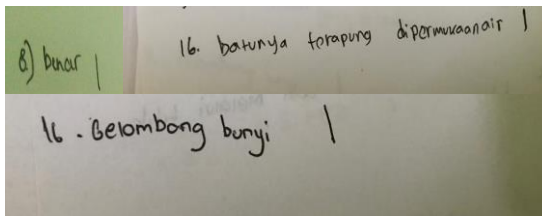 8) benar |
16. batunya terapung dipermukaan air |
16. Gelombang bunyi |